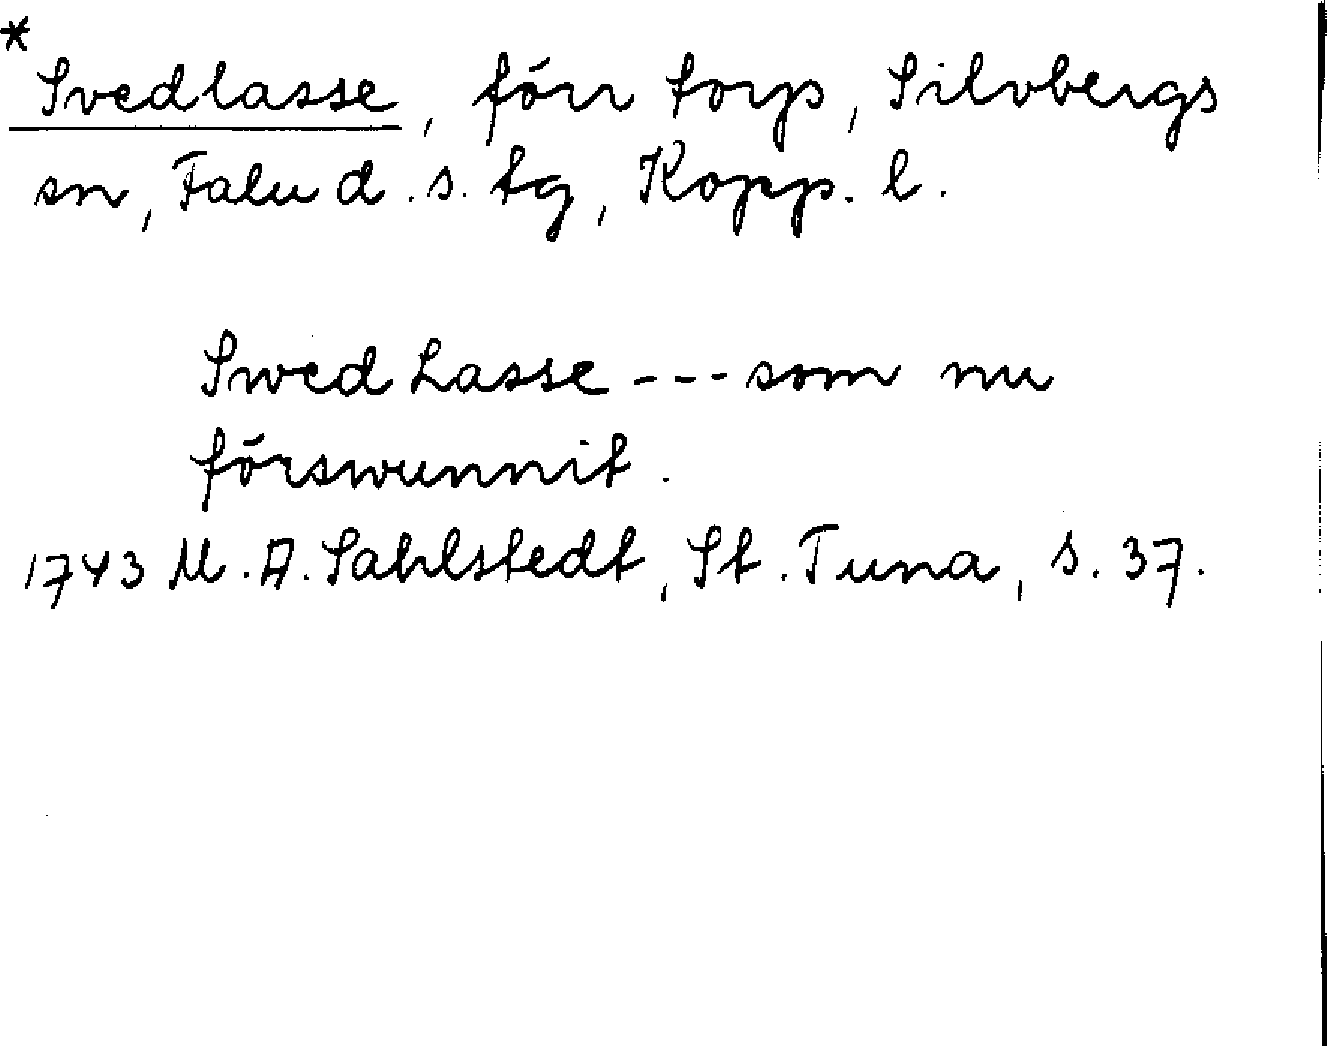 *
Svedlasse, förr torp, Silvbergs
sn, Falu d. s. tg, Kopp. l.
Swed Lasse --- som nu
förswunnit.
1743 M. A. Sahlstedt, St. Tuna, s. 37.